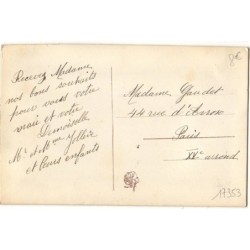 Recevez Madame
nos bons souhaits
pour vous votre
mari et votre
Demoiselle
Mr et Mme
et leurs enfants
Madame Gaudet
44 rue d'Avron
Paris
XXe arrond
2€
17353